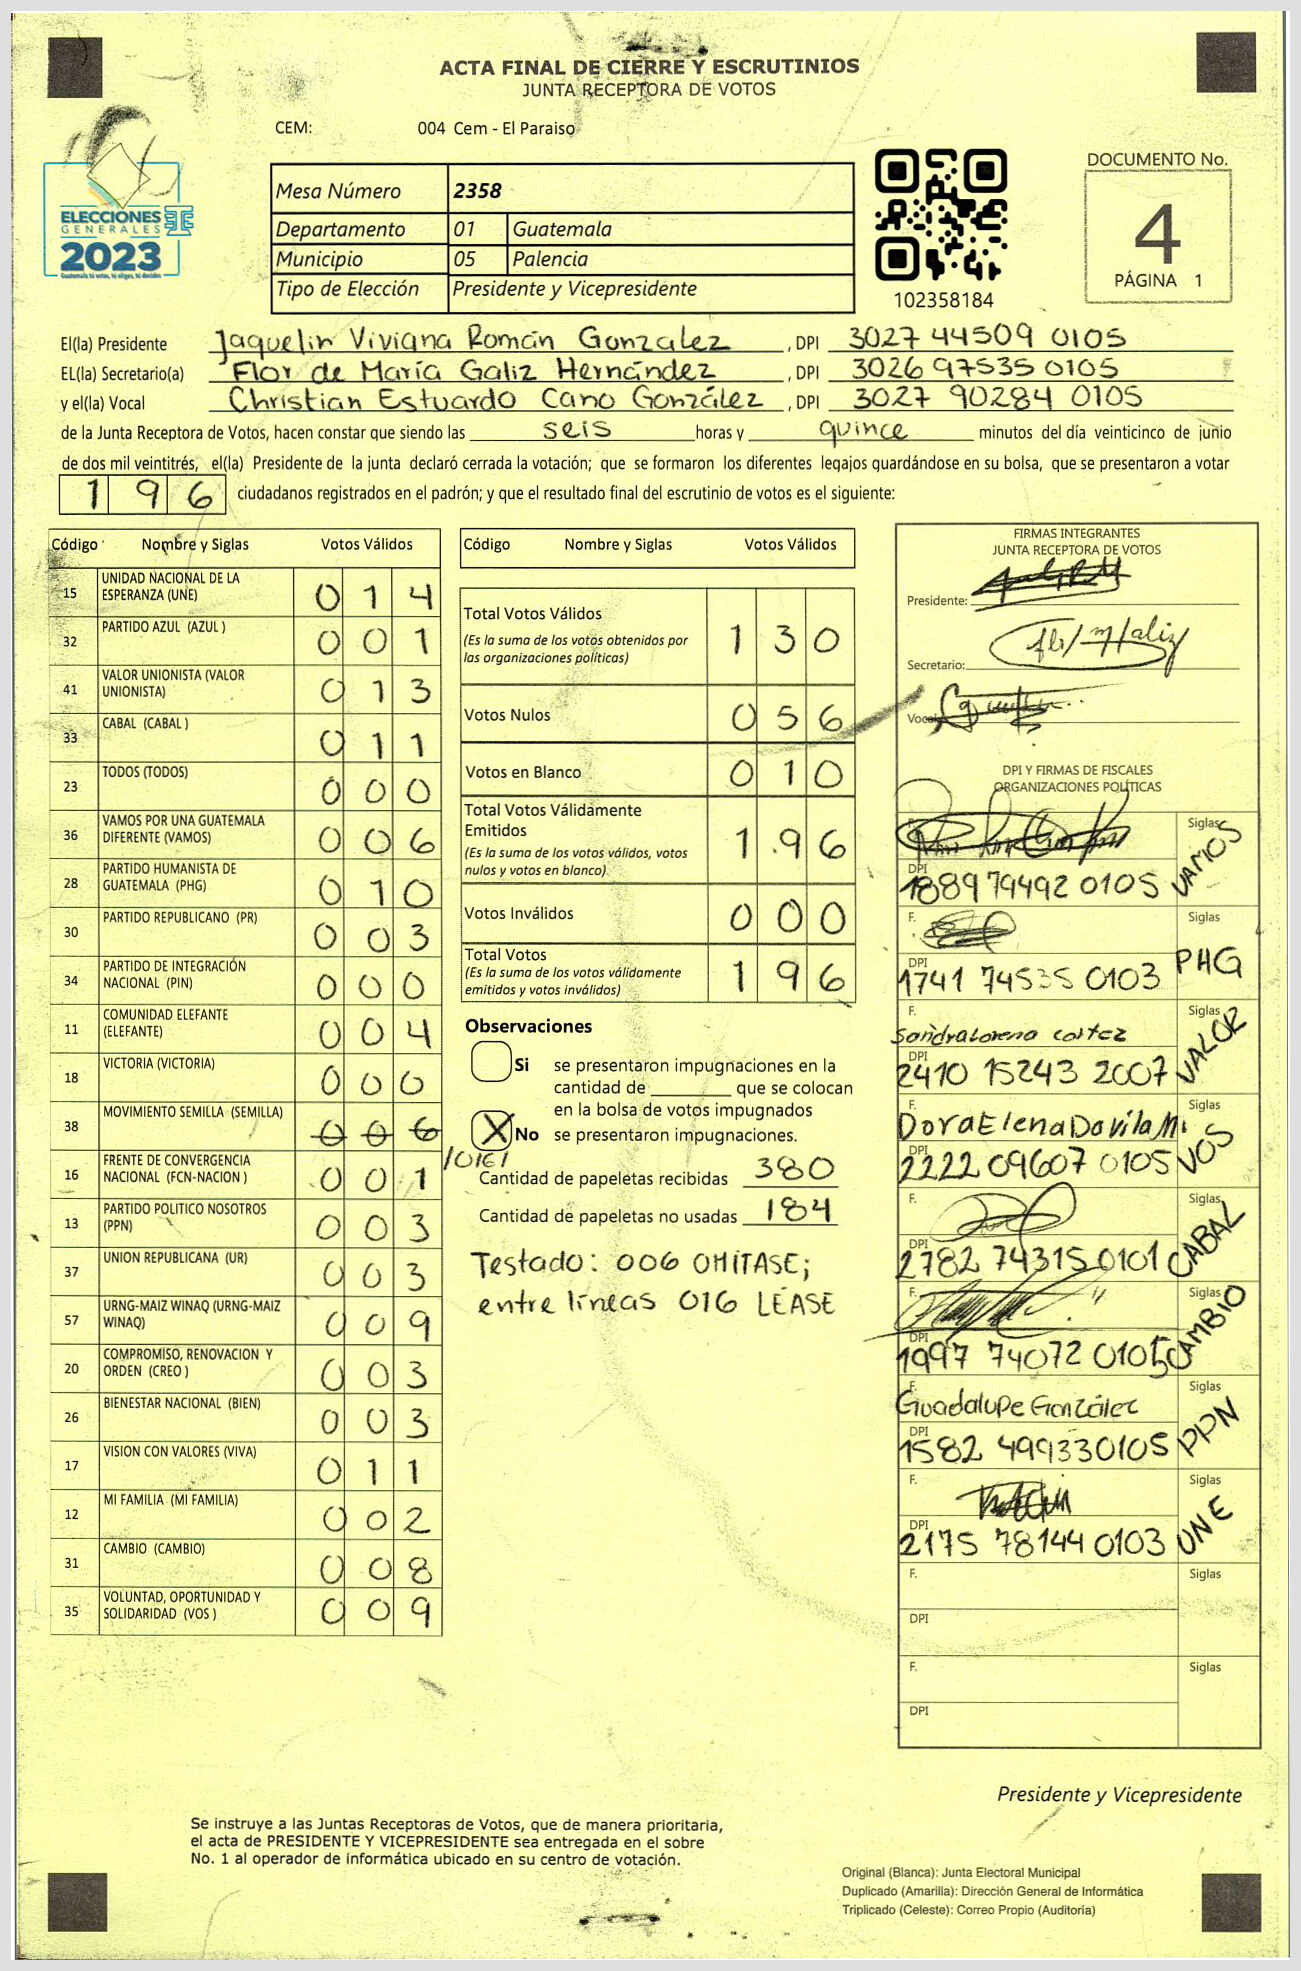 ACTA FINAL DE CIERRE Y ESCRUTINIOS
JUNTA RECEPTORA DE VOTOS
CEM: 004 Cem - El Paraiso
ELECCIONES
GENERALES
2023
Mesa Número 2358
Departamento 01 Guatemala
Municipio 05 Palencia
Tipo de Elección Presidente y Vicepresidente
102358184
DOCUMENTO No.
4
PÁGINA 1
El(la) Presidente Jaquelin Viviana Román Gonzalez, DPI 3027 44509 0105
EL(la) Secretario(a) Flor de María Galiz Hernández, DPI 3026 97535 0105
y el(la) Vocal Christian Estuardo Cano González, DPI 3027 90284 0105
de la Junta Receptora de Votos, hacen constar que siendo las seis horas y quince minutos del día veinticinco de junio
de dos mil veintitrés, el(la) Presidente de la junta declaró cerrada la votación; que se formaron los diferentes legajos guardándose en su bolsa, que se presentaron a votar
196 ciudadanos registrados en el padrón; y que el resultado final del escrutinio de votos es el siguiente:
Código Nombre y Siglas Votos Válidos
15 UNIDAD NACIONAL DE LA ESPERANZA (UNE) 014
32 PARTIDO AZUL (AZUL ) 001
41 VALOR UNIONISTA (VALOR UNIONISTA) 013
33 CABAL (CABAL ) 011
23 TODOS (TODOS) 000
36 VAMOS POR UNA GUATEMALA DIFERENTE (VAMOS) 006
28 PARTIDO HUMANISTA DE GUATEMALA (PHG) 010
30 PARTIDO REPUBLICANO (PR) 003
34 PARTIDO DE INTEGRACIÓN NACIONAL (PIN) 000
11 COMUNIDAD ELEFANTE (ELEFANTE) 004
18 VICTORIA (VICTORIA) 000
38 MOVIMIENTO SEMILLA (SEMILLA) 006
/016/
16 FRENTE DE CONVERGENCIA NACIONAL (FCN-NACION ) 001
13 PARTIDO POLITICO NOSOTROS (PPN) 003
37 UNION REPUBLICANA (UR) 003
57 URNG-MAIZ WINAQ (URNG-MAIZ WINAQ) 009
20 COMPROMISO, RENOVACION Y ORDEN (CREO ) 003
26 BIENESTAR NACIONAL (BIEN) 003
17 VISION CON VALORES (VIVA) 011
12 MI FAMILIA (MI FAMILIA) 002
31 CAMBIO (CAMBIO) 008
35 VOLUNTAD, OPORTUNIDAD Y SOLIDARIDAD (VOS ) 009
Código Nombre y Siglas Votos Válidos
Total Votos Válidos 130
(Es la suma de los votos obtenidos por
las organizaciones políticas)
Votos Nulos 056
Votos en Blanco 010
Total Votos Válidamente
Emitidos 196
(Es la suma de los votos válidos, votos
nulos y votos en blanco)
Votos Inválidos 000
Total Votos 196
(Es la suma de los votos válidamente
emitidos y votos inválidos)
Observaciones
Si se presentaron impugnaciones en la
cantidad de ________ que se colocan
en la bolsa de votos impugnados
X No se presentaron impugnaciones.
Cantidad de papeletas recibidas 380
Cantidad de papeletas no usadas 184
Testado: 006 OMITASE;
entre líneas 016 LÉASE
FIRMAS INTEGRANTES
JUNTA RECEPTORA DE VOTOS
Presidente:
Secretario:
Vocal
DPI Y FIRMAS DE FISCALES
ORGANIZACIONES POLÍTICAS
F. Siglas VAMOS
DPI 1889 79492 0105
F. Siglas PHG
DPI 1741 74535 0103
F. Sandra Lorena cortez Siglas VALOR
DPI 2410 15243 2007
F. Dora Elena Davila M. Siglas VOS
DPI 2222 09607 0105
F. Siglas CABAL
DPI 2782 74315 0101
F. CAMBIO
DPI 1997 74072 0105
F. Guadalupe González Siglas PPN
DPI 1582 49933 0105
F. Siglas UNE
DPI 2175 78144 0103
F. Siglas
DPI
F. Siglas
DPI
Presidente y Vicepresidente
Se instruye a las Juntas Receptoras de Votos, que de manera prioritaria,
el acta de PRESIDENTE Y VICEPRESIDENTE sea entregada en el sobre
No. 1 al operador de informática ubicado en su centro de votación.
Original (Blanca): Junta Electoral Municipal
Duplicado (Amarilla): Dirección General de Informática
Triplicado (Celeste): Correo Propio (Auditoría)